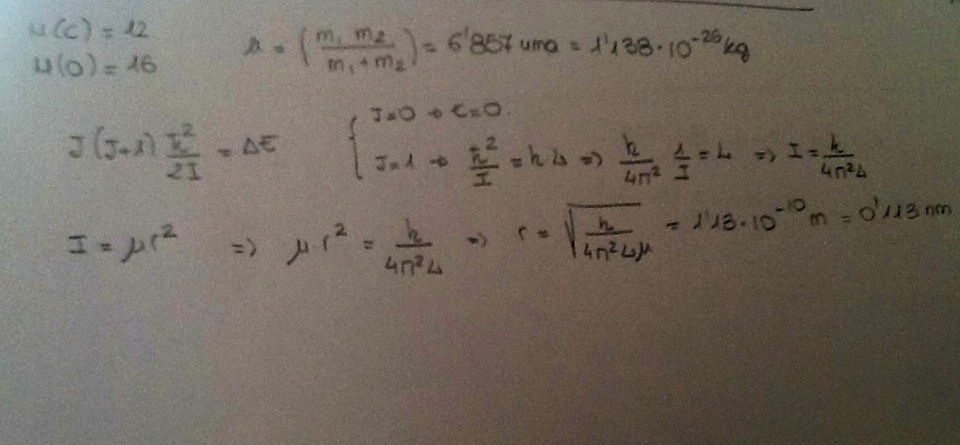 M(C) = 12
M(O) = 16
μ = (m₁ m₂ / m₁ + m₂) = 6'857 uma = 1'138·10⁻²⁶ kg
J(J+1) ħ²/2I = ΔE
{ J=0 → E=0.
J=1 → ħ²/I = h ν => h/4π² 1/I = ν => I = h/4π²ν
I = μr² => μr² = h/4π²ν => r = √(h/4π²νμ) = 1'13·10⁻¹⁰ m = 0'113 nm